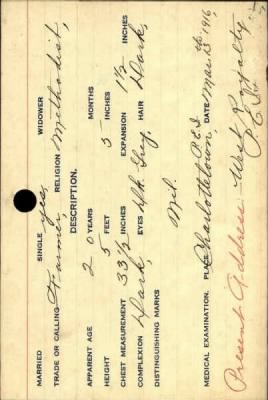 MARRIED SINGLE yes, WIDOWER
TRADE OR CALLING Farmer RELIGION Methodist,
DESCRIPTION.
APPARENT AGE 20 YEARS MONTHS
HEIGHT 5 FEET 5 INCHES
CHEST MEASUREMENT 33 1/2 INCHES EXPANSION 1 1/2 INCHES
COMPLEXION Dark, EYES Dk. Grey, HAIR Dark,
DISTINGUISHING MARKS Nil.
MEDICAL EXAMINATION. PLACE Charlottetown, P.E.I. DATE Mar. 1916
Present Address:- West Royalty
P.E.I.